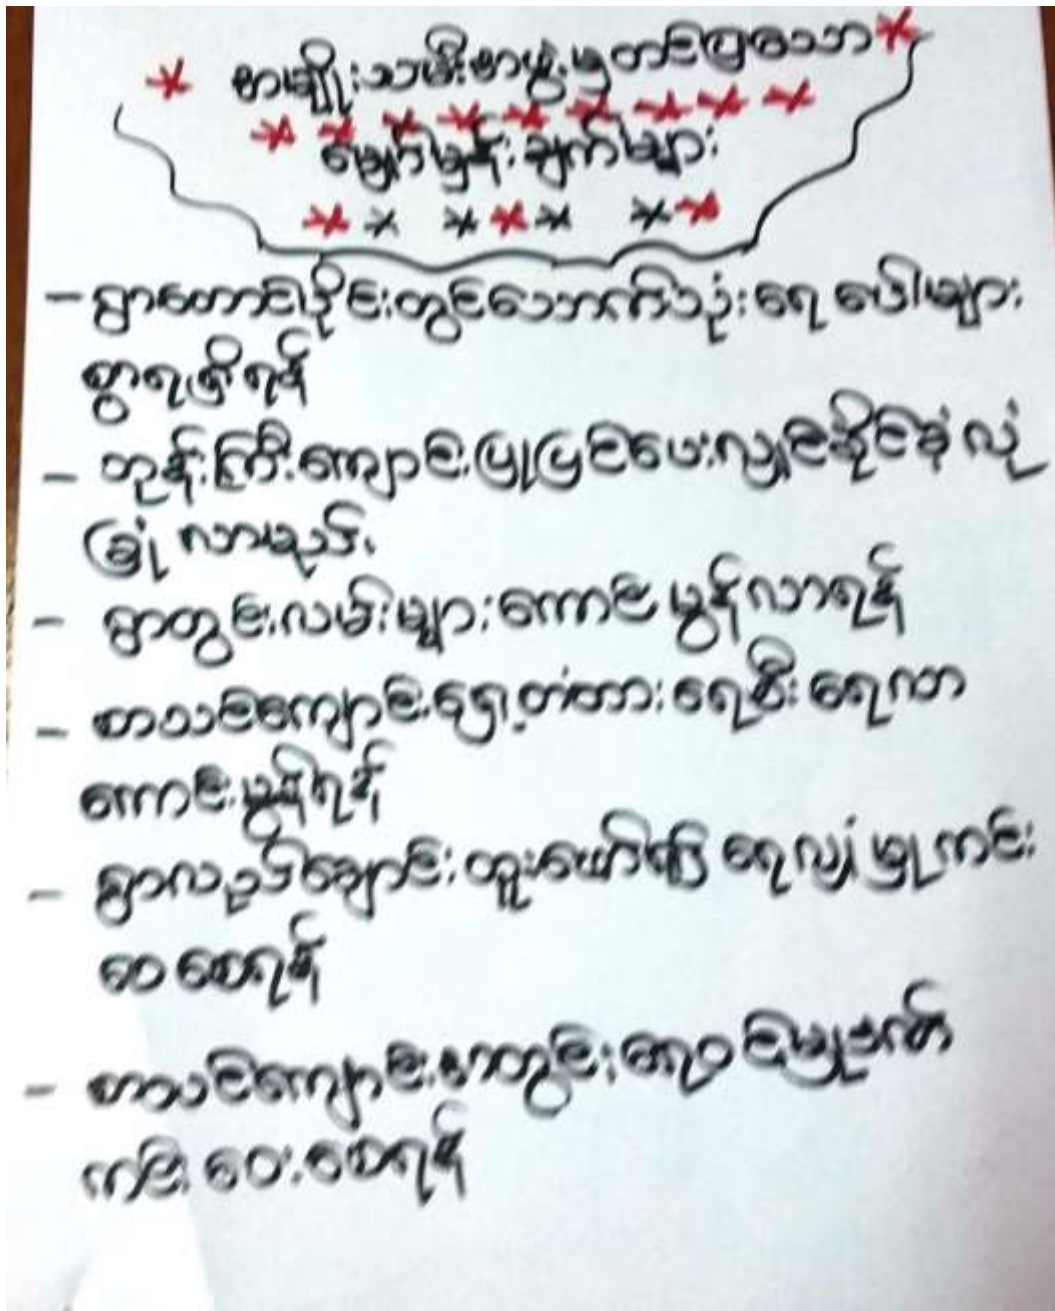 အမျိုးသမီးအဖွဲ့မှတင်ပြသော
မျှော်မှန်းချက်များ
- ရွာတောင်ပိုင်းတွင်သောက်သုံးရေ ပေါများ
စွာရရှိရန်
- ဘုန်းကြီးကျောင်းပြုပြင်ပေးလျှင်ခိုင်ခံ့လုံ
ခြုံလာမည်။
- ရွာတွင်းလမ်းများကောင်းမွန်လာရန်
- စာသင်ကျောင်းရှေ့တံတားရေစီးရေလာ
ကောင်းမွန်ရန်
- ရွာလည်ချောင်းတူးဖော်၍ ရေလျှံမှုကင်း
ဝေးစေရန်
- စာသင်ကျောင်းအတွင်းရေဝင်မှုဒဏ်
ကင်းဝေးစေရန်